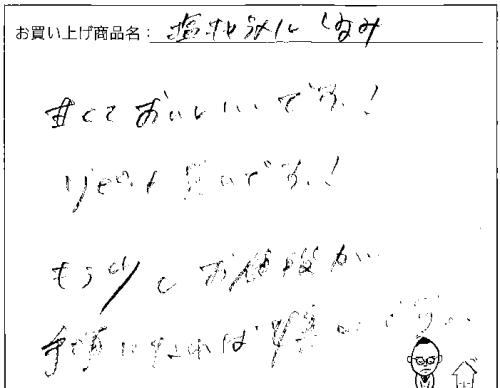 お買い上げ商品名: 塩キャラメルくるみ
甘くておいしいです!
リピート買いです!
もう少しお値段が
手頃になれば嬉しいです。